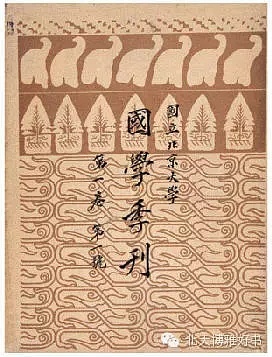 國立北京大學
國學季刊
第一卷第一號
北大博雅好书